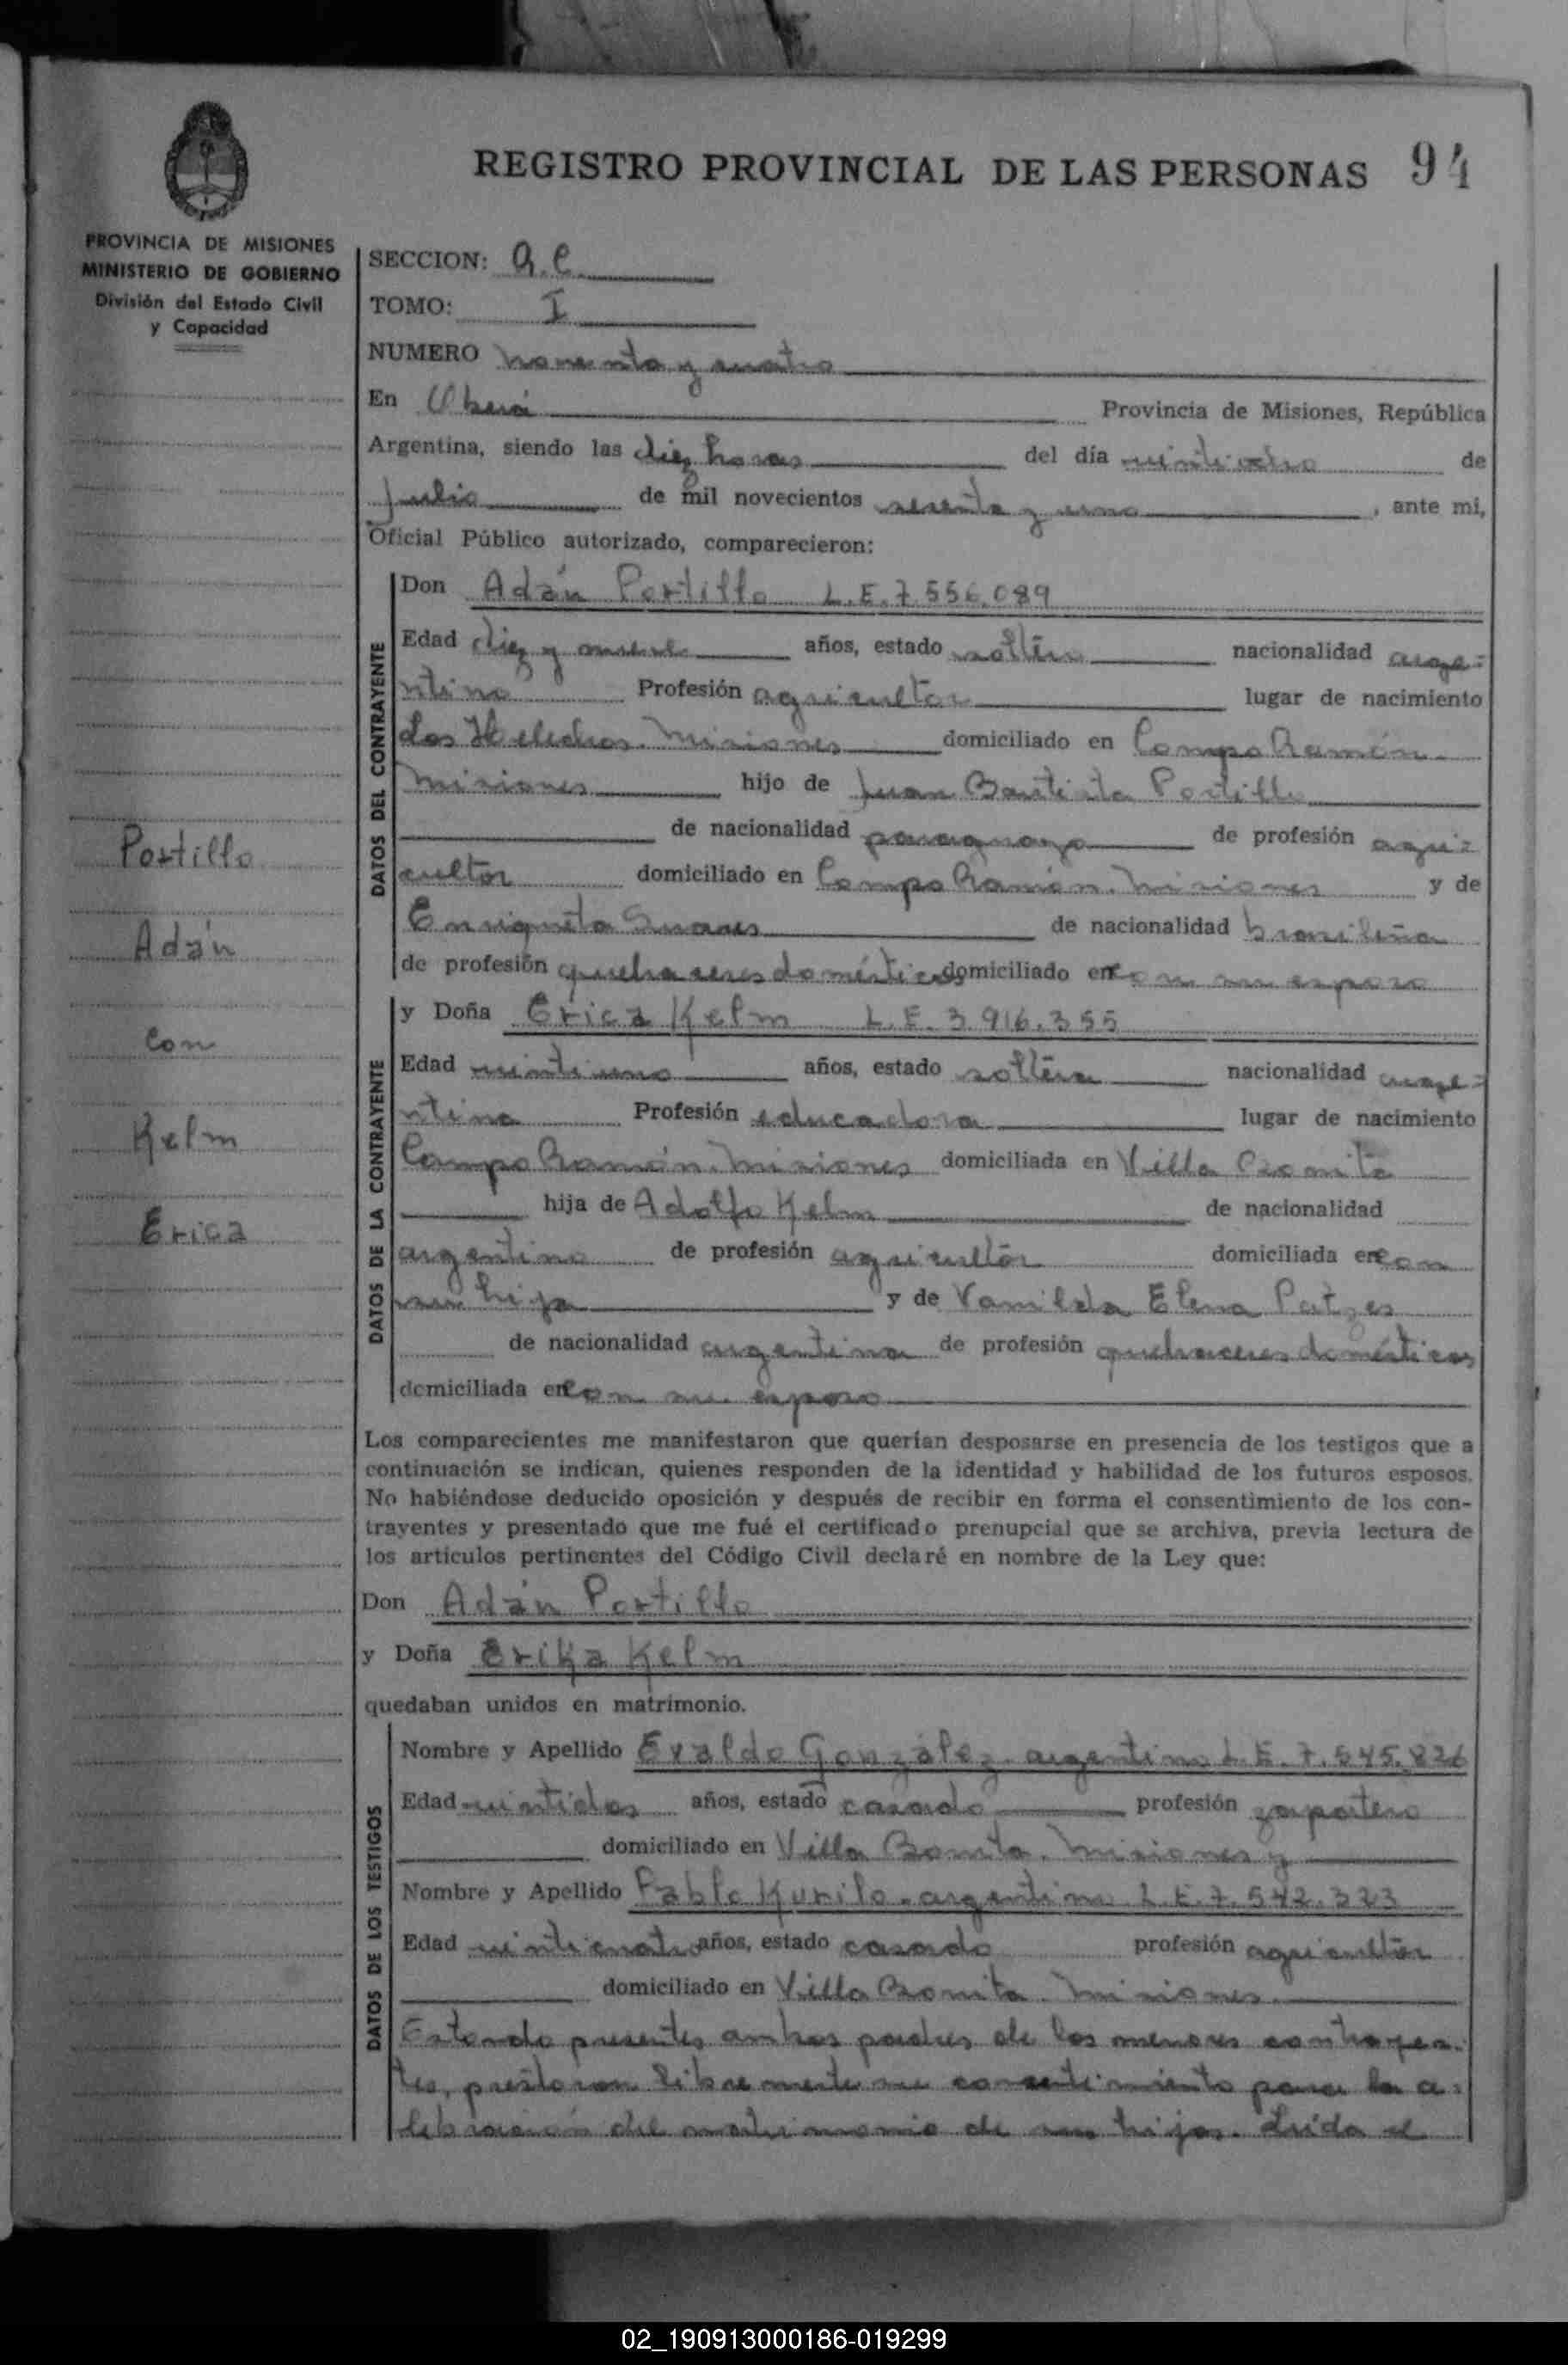 REGISTRO PROVINCIAL DE LAS PERSONAS 94
PROVINCIA DE MISIONES
MINISTERIO DE GOBIERNO
División del Estado Civil
y Capacidad
Portillo
Adán
con
Kelm
Erica
SECCION: A.C.
TOMO: I
NUMERO noventa y cuatro
En Oberá Provincia de Misiones, República
Argentina, siendo las diez horas del día veintiocho de
Julio de mil novecientos sesenta y uno, ante mi,
Oficial Público autorizado, comparecieron:
DATOS DEL CONTRAYENTE
Don Adán Portillo L.E. 7.556.089
Edad diez y nueve años, estado soltero nacionalidad arge=
ntino Profesión agricultor lugar de nacimiento
Los Helechos. Misiones domiciliado en Campo Ramón.
Misiones hijo de Juan Bautista Portillo
de nacionalidad paraguayo de profesión agri=
cultor domiciliado en Campo Ramón. Misiones y de
Enriqueta Suares de nacionalidad brasileña
de profesión quehaceres domésticos domiciliado en con su esposo
DATOS DE LA CONTRAYENTE
y Doña Erica Kelm L.E. 3.916.355
Edad veintiuno años, estado soltera nacionalidad arge=
ntina Profesión educadora lugar de nacimiento
Campo Ramón. Misiones domiciliada en Villa Bonita
hija de Adolfo Kelm de nacionalidad
argentino de profesión agricultor domiciliada en con
su hija y de Vanilda Elena
de nacionalidad argentina de profesión quehaceres domésticos
domiciliada en con su esposo
Los comparecientes me manifestaron que querían desposarse en presencia de los testigos que a
continuación se indican, quienes responden de la identidad y habilidad de los futuros esposos.
No habiéndose deducido oposición y después de recibir en forma el consentimiento de los con-
trayentes y presentado que me fué el certificado prenupcial que se archiva, previa lectura de
los artículos pertinentes del Código Civil declaré en nombre de la Ley que:
Don Adán Portillo
y Doña Erika Kelm
quedaban unidos en matrimonio.
DATOS DE LOS TESTIGOS
Nombre y Apellido Evaldo González. argentino L.E. 7.545.826
Edad veintidos años, estado casado profesión zapatero
domiciliado en Villa Bonita. Misiones y
Nombre y Apellido Pablo Kurilo. argentino L.E. 7.542.323
Edad veinticuatro años, estado casado profesión agricultor
domiciliado en Villa Bonita. Misiones.
Estando presentes ambos padres de los menores contrayen=
tes, prestaron libremente su consentimiento para la ce=
lebración del matrimonio de sus hijos. Leída el
02_190913000186-019299